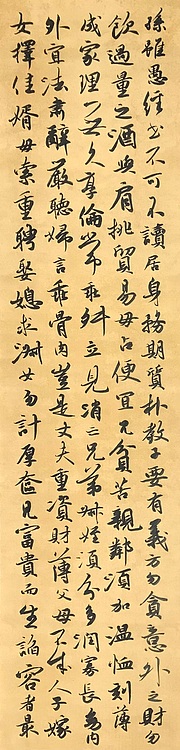 孫雖愚經書不可不讀居身務期質朴教子要有義方勿貪意外之財勿
飲過量之酒與肩挑貿易毋占便宜見貧苦親鄰須加温恤刻薄
成家理無久享倫常乖舛立見消亡兄弟叔姪須分多潤寡長幼內
外宜法肅辭嚴聽婦言乖骨肉豈是丈夫重資財薄父母不成人子嫁
女擇佳婿毋索重聘娶媳求淑女勿計厚奩見富貴而生諂容者最